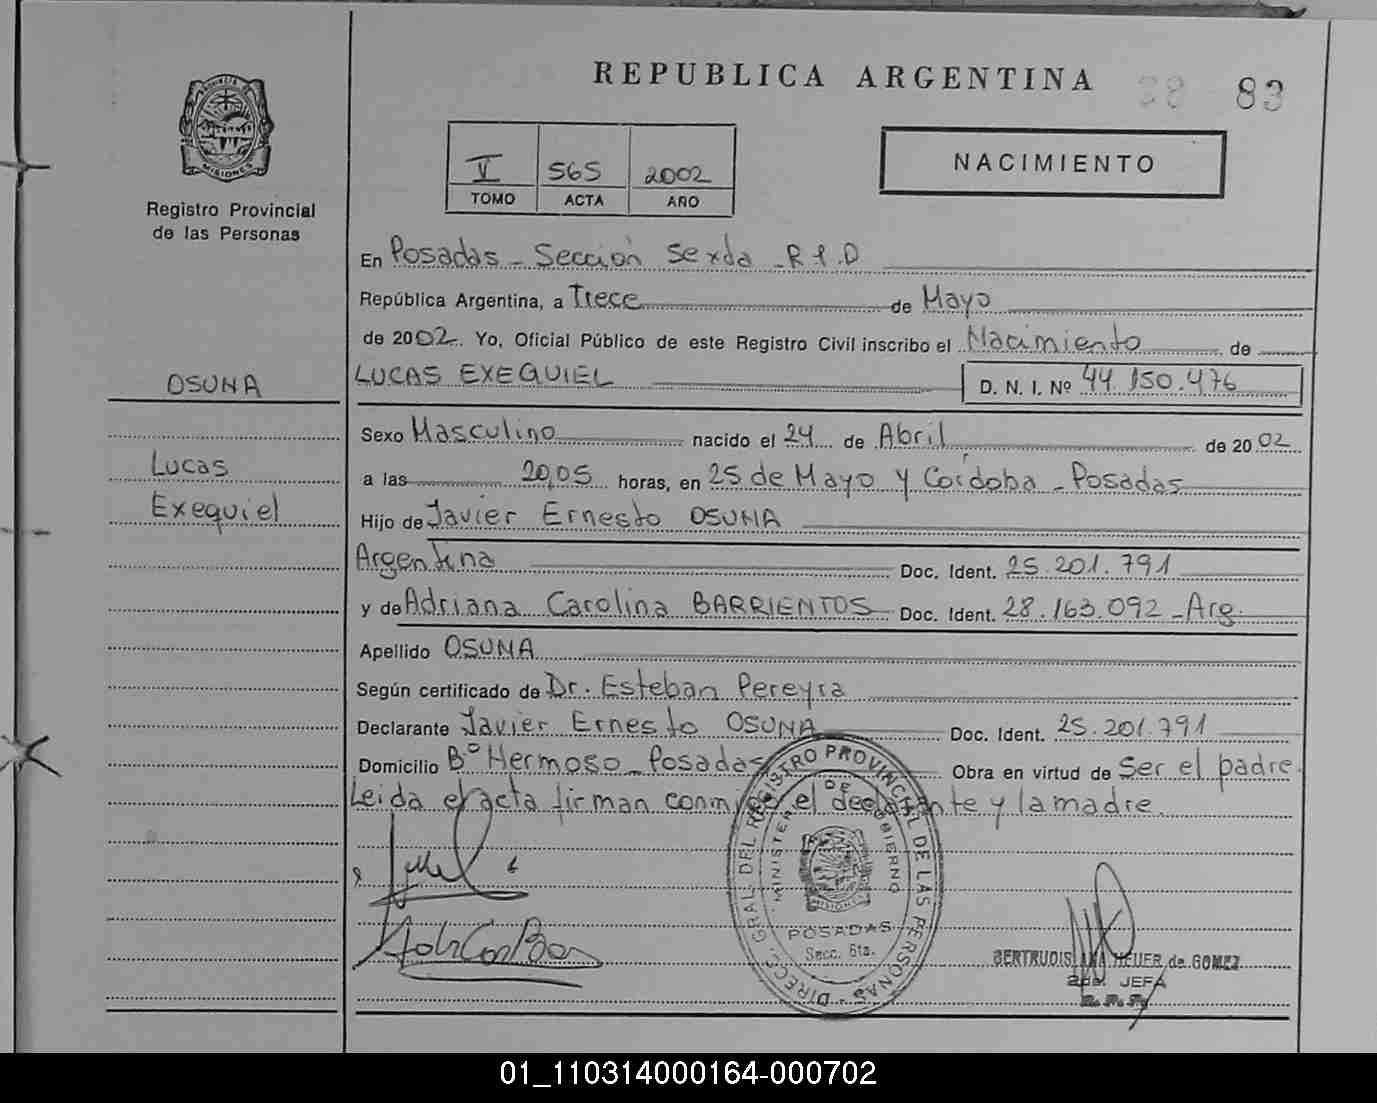 REPUBLICA ARGENTINA
83
PROVINCIA DE
MISIONES
Registro Provincial
de las Personas
V 565 2002
TOMO ACTA AÑO
NACIMIENTO
En Posadas - Sección Sexta - R.P.P
República Argentina, a Trece de Mayo
de 2002. Yo, Oficial Público de este Registro Civil inscribo el Nacimiento de
LUCAS EXEQUIEL D. N. I. Nº 44.150.476
OSUNA
Lucas
Exequiel
Sexo Masculino nacido el 24 de Abril de 2002
a las 20,05 horas, en 25 de Mayo y Córdoba - Posadas
Hijo de Javier Ernesto OSUNA
Argentina Doc. Ident. 25.201.791
y de Adriana Carolina BARRIENTOS Doc. Ident. 28.163.092 - Arg.
Apellido OSUNA
Según certificado de Dr. Esteban Pereyra
Declarante Javier Ernesto OSUNA Doc. Ident. 25.201.791
Domicilio Bº Hermoso - Posadas Obra en virtud de Ser el padre.
Leida el acta firman conmigo el declarante y la madre.
DIRECC. GRAL. DEL REGISTRO PROVINCIAL DE LAS PERSONAS
MINISTERIO DE GOBIERNO
MISIONES
POSADAS
Secc. 6ta.
BERTRUDIS ANA HEUER de GOMEZ
2da. JEFA
R.P.P.
01_110314000164-000702